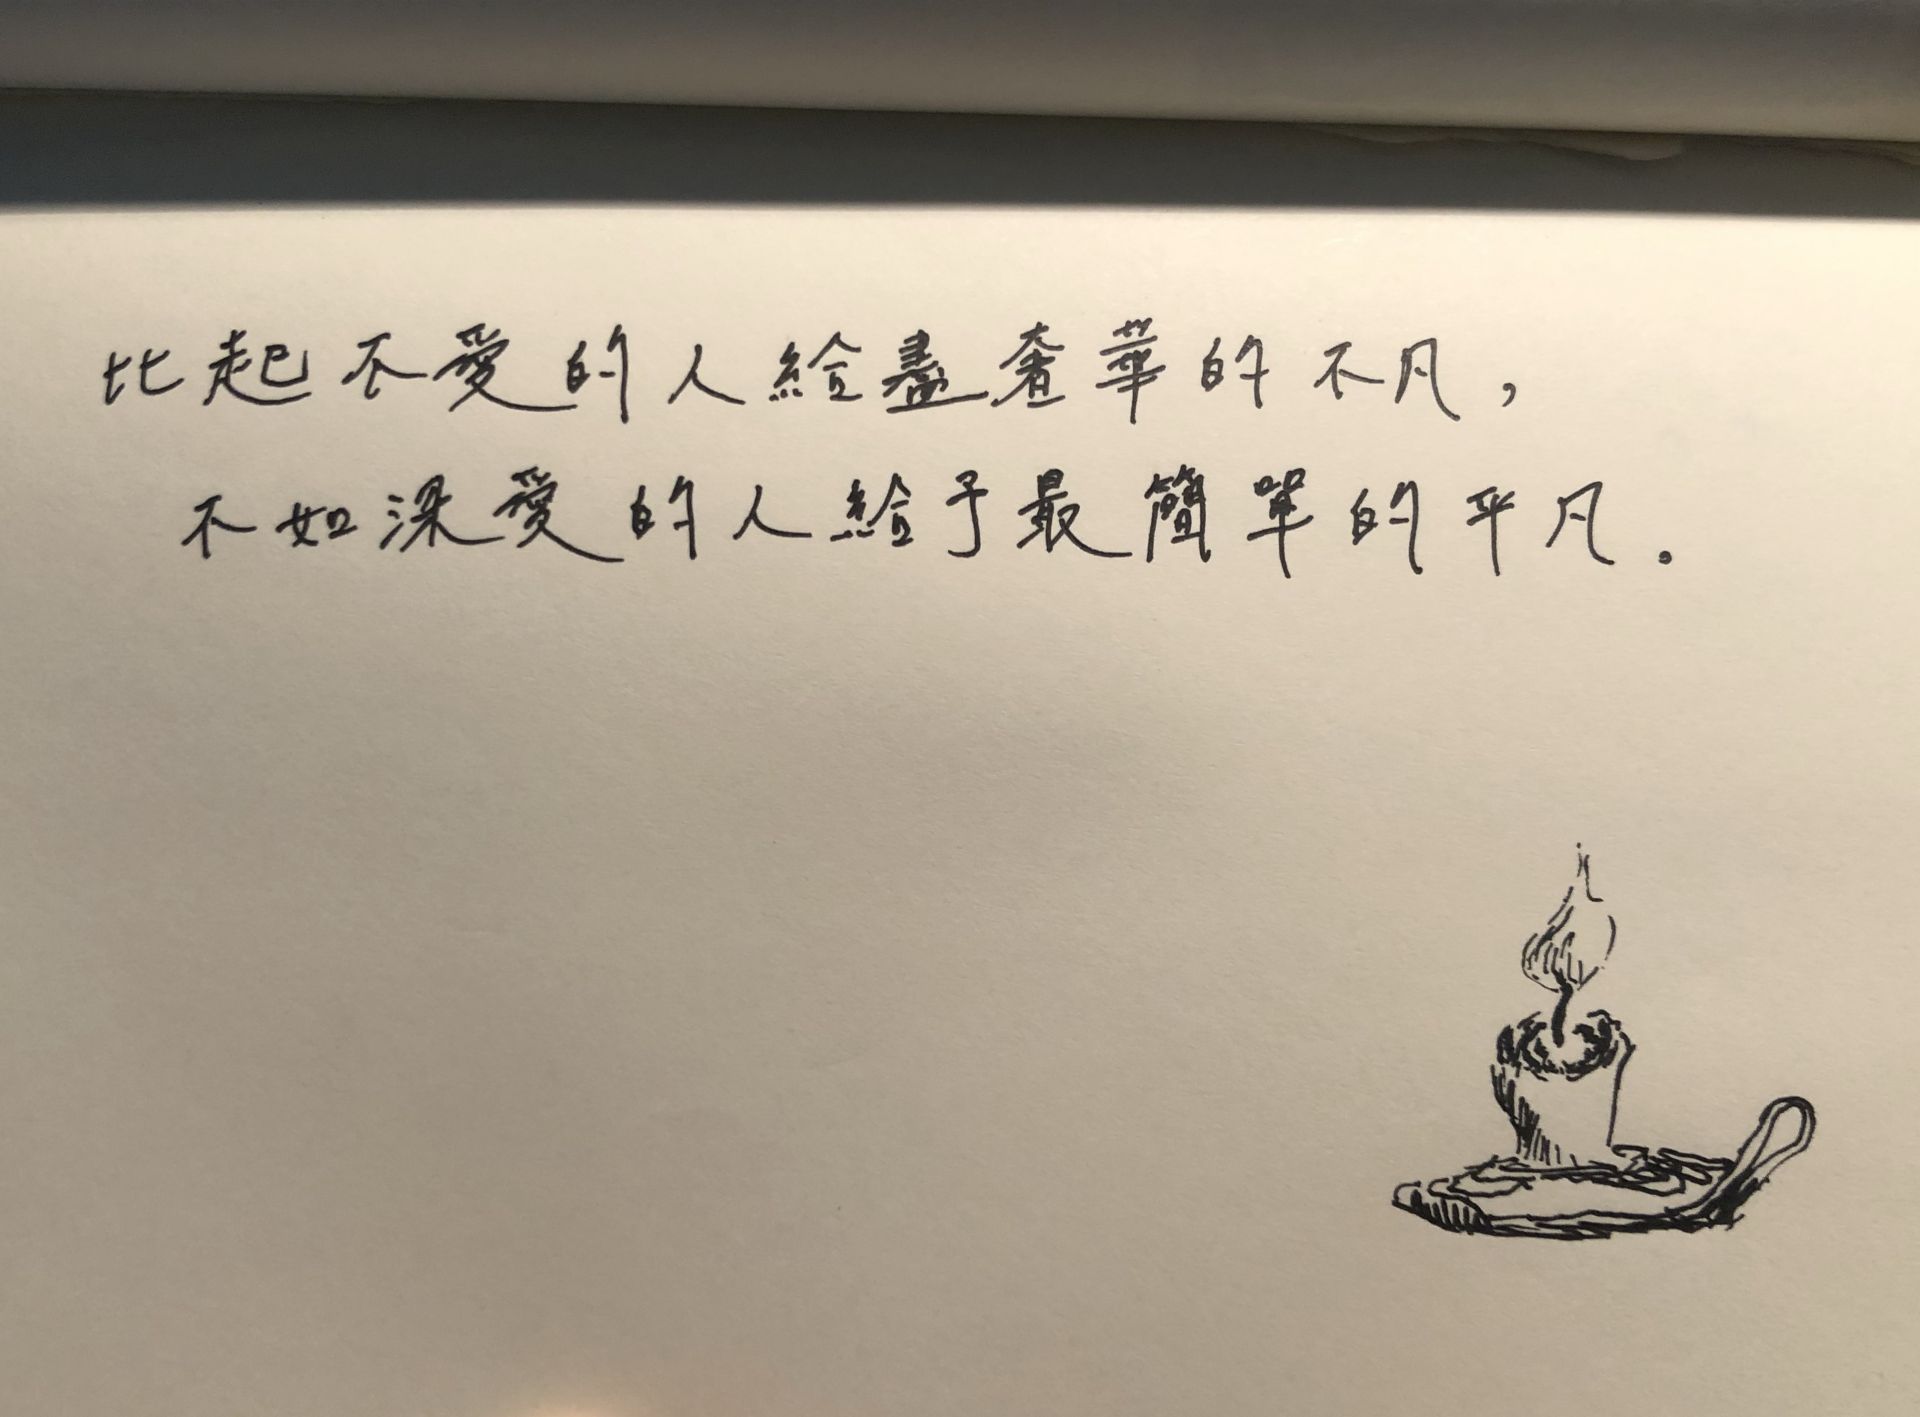 比起不愛的人給盡奢華的不凡，
不如深愛的人給予最簡單的平凡。